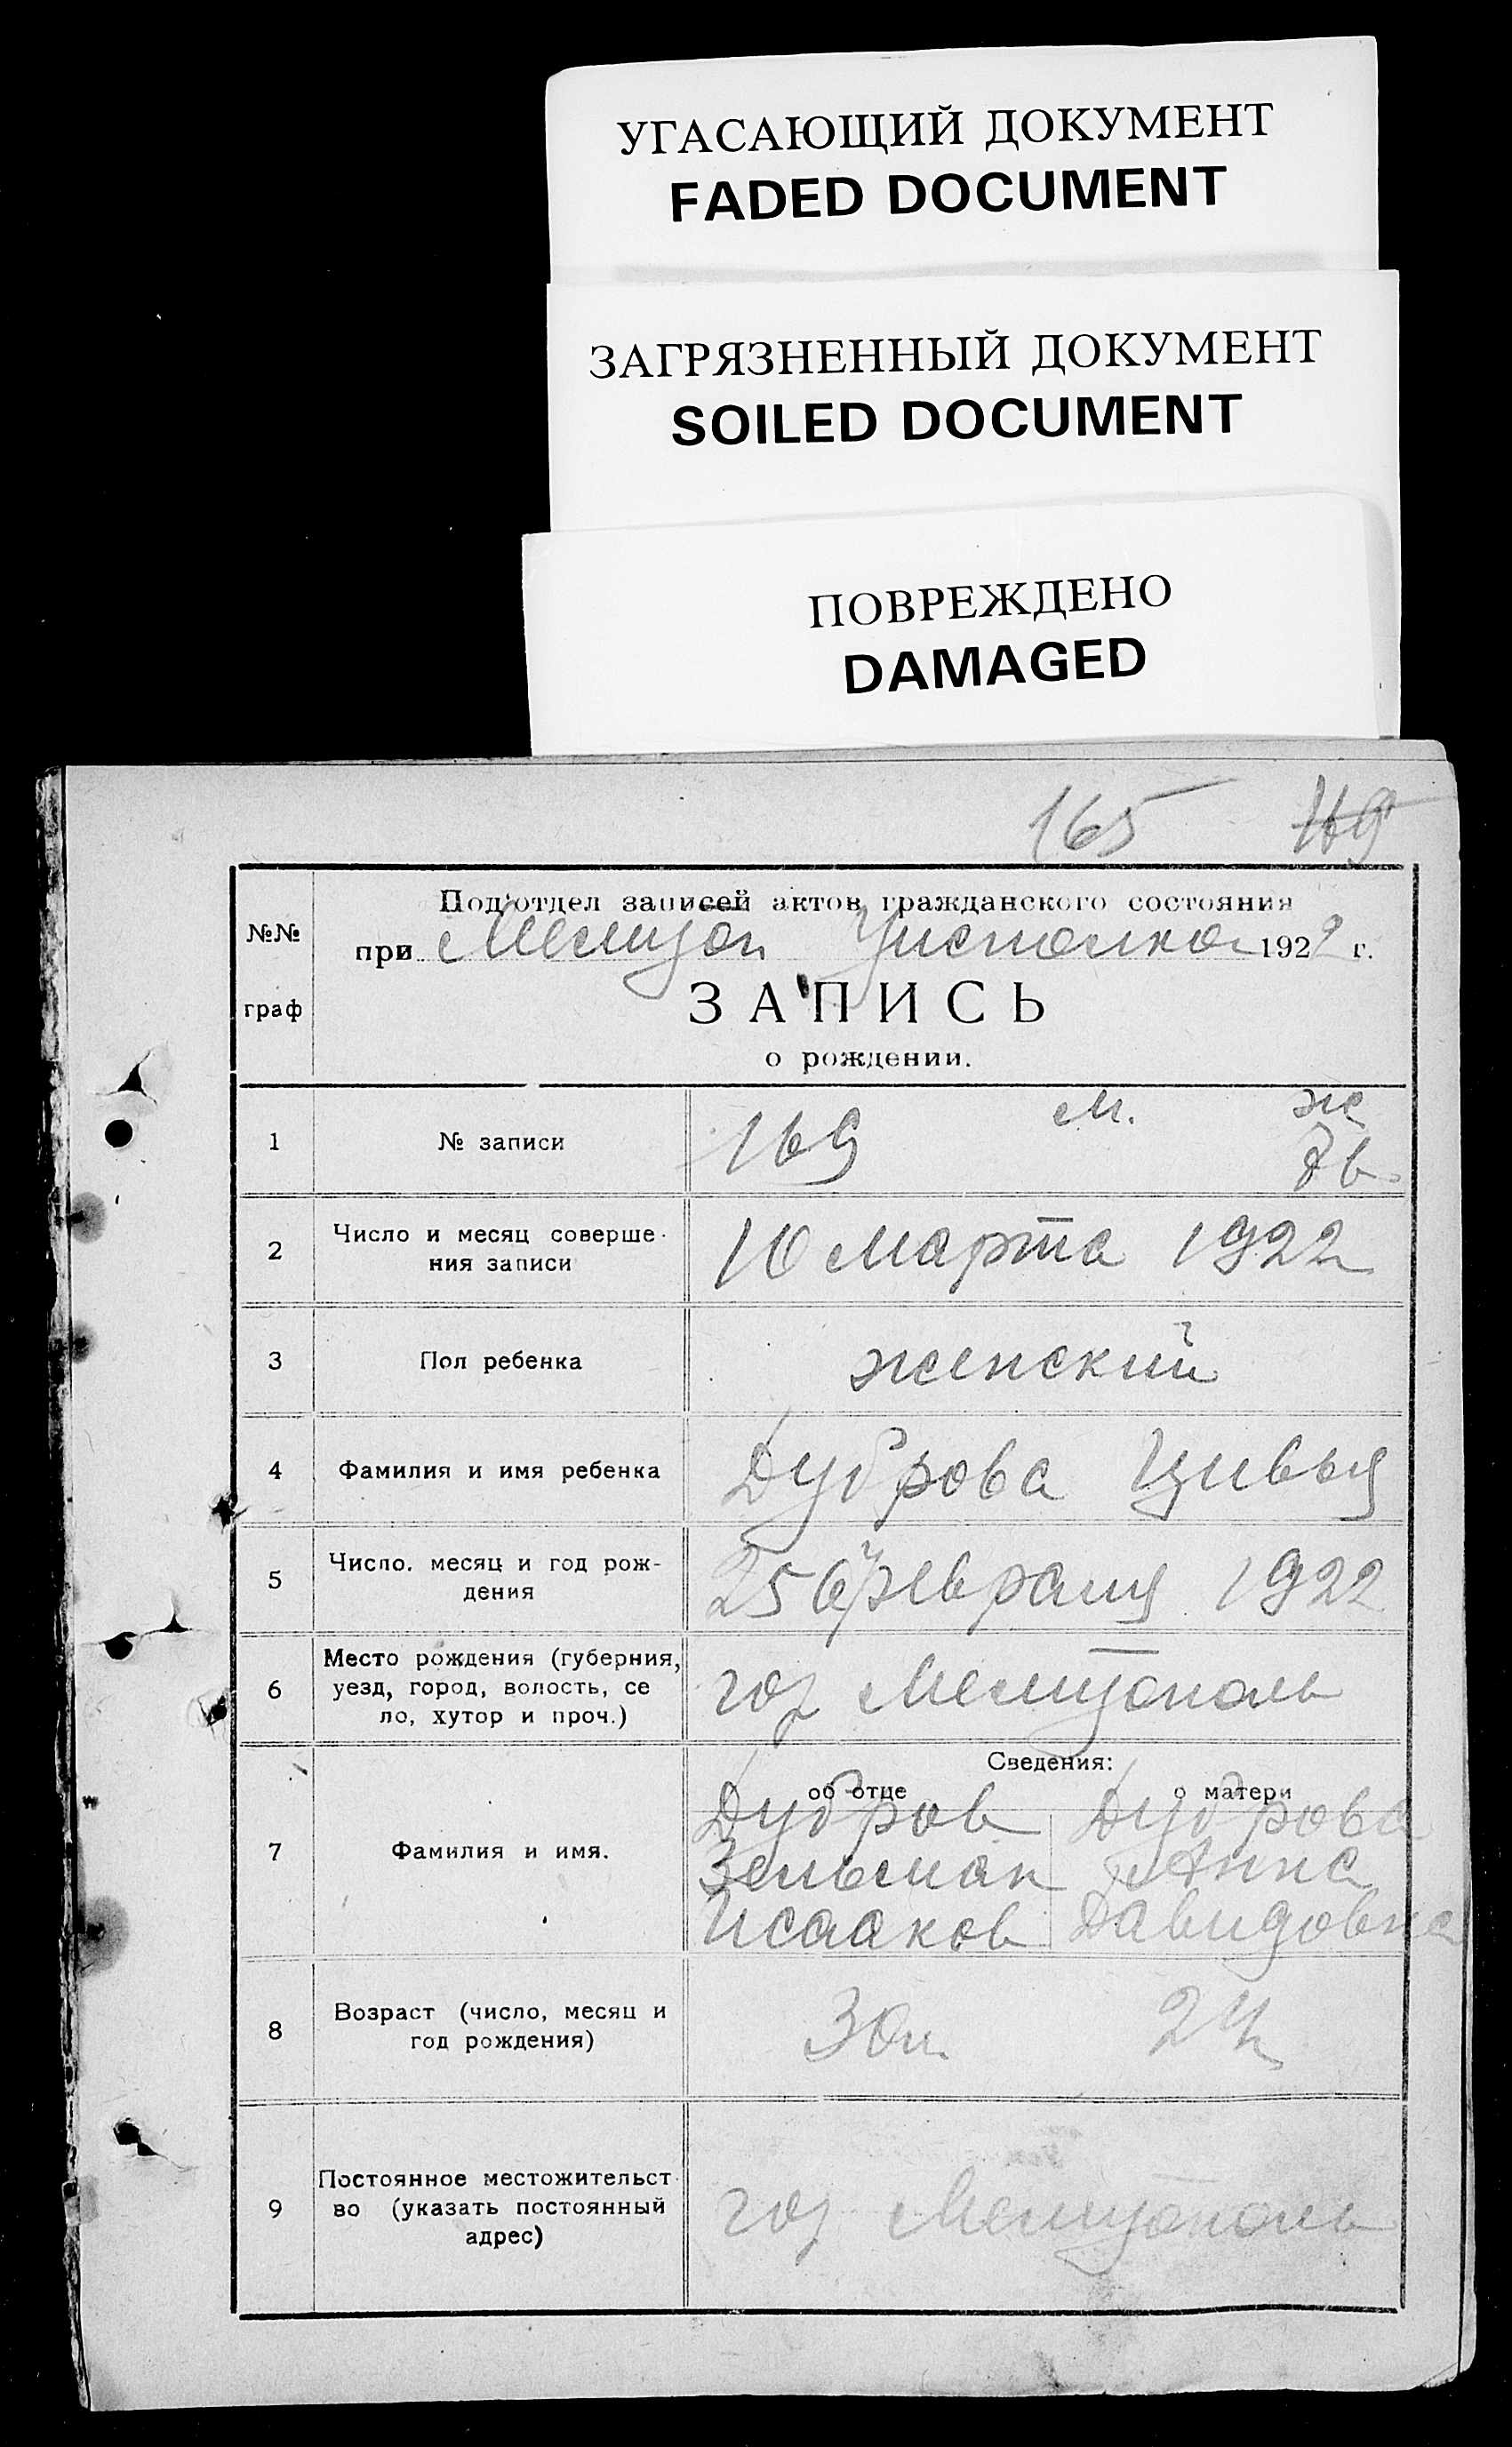 УГАСАЮЩИЙ ДОКУМЕНТ
FADED DOCUMENT
ЗАГРЯЗНЕННЫЙ ДОКУМЕНТ
SOILED DOCUMENT
ПОВРЕЖДЕНО
DAMAGED
165 169
№№
граф
Под'отдел записей актов гражданского состояния
при Мелитоп Уисполко 1922 г.
ЗАПИСЬ
о рождении.
м. ж
1 № записи 169
2 Число и месяц соверше-
ния записи
10 марта 1922
3 Пол ребенка женский
4 Фамилия и имя ребенка Дуброва Цивья
5 Число. месяц и год рож-
дения
25 февраля 1922
6 Место рождения (губерния,
уезд, город, волость, се
ло, хутор и проч.)
гор Мелитополь
Сведения:
об отце о матери
7 Фамилия и имя.
Дубров Дуброва
Зельман Анна
Исааков Давидовна
8 Возраст (число, месяц и
год рождения)
30л.
9 Постоянное местожительст
во (указать постоянный
адрес)
гор Мелитополь